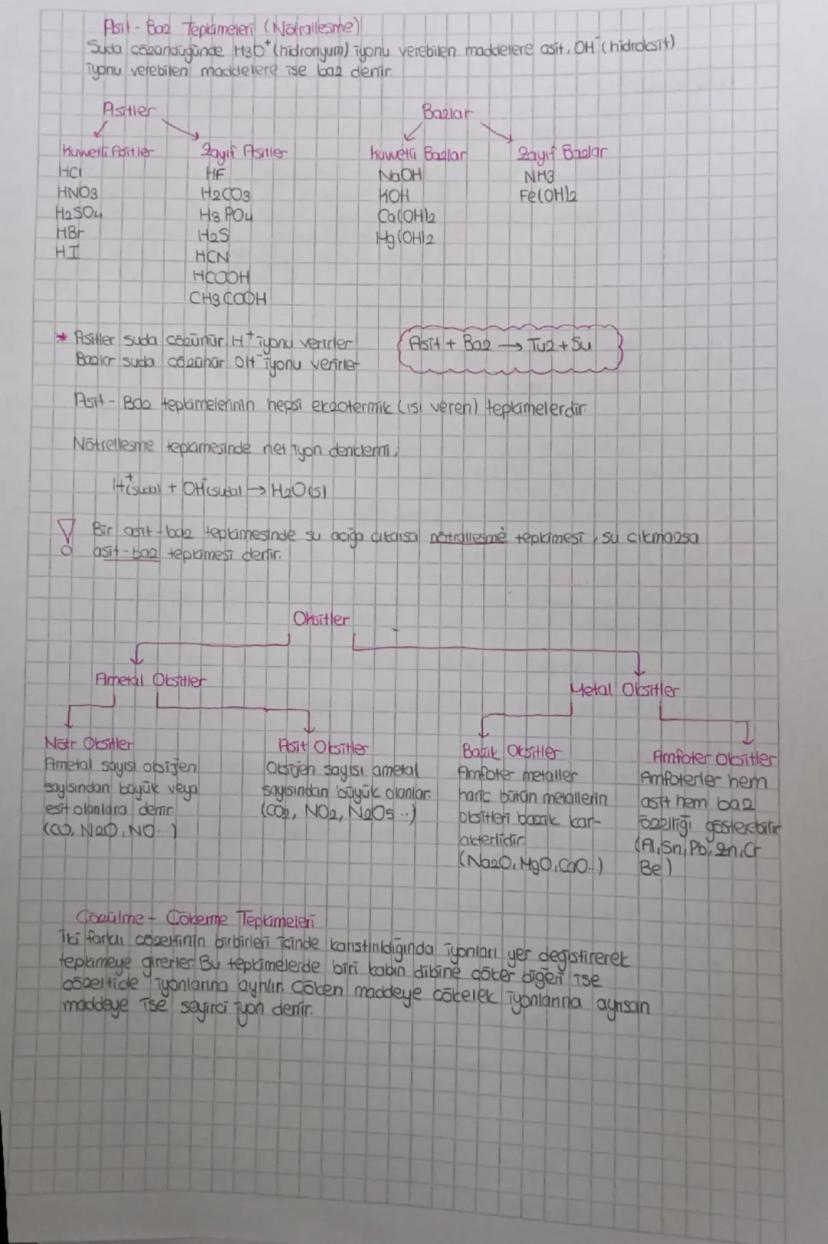 Asit - Baz Tepkimeleri (Nötralleşme)
Suda çözündüğünde H3O+ (hidronyum) iyonu verebilen maddelere asit, OH- (hidroksit)
iyonu verebilen maddelere ise baz denir.
Asitler
Bazlar
Kuvvetli Asitler
Zayıf Asitler
Kuvvetli Bazlar
Zayıf Bazlar
HCl
HF
NaOH
NH3
HNO3
H2CO3
KOH
Fe(OH)2
H2SO4
H3PO4
Ca(OH)2
HBr
H2S
Mg(OH)2
HI
HCN
HCOOH
CH3COOH
* Asitler suda çözünür H+ iyonu verirler
Bazlar suda çözünür OH- iyonu verirler
Asit + Baz → Tuz + Su
Asit - Baz tepkimelerinin hepsi ekzotermik (ısı veren) tepkimelerdir
Nötrelleşme tepkimesinde net iyon denklemi;
H+(suda) + OH-(suda) → H2O(s)
! Bir asit-baz tepkimesinde su açığa çıkarsa nötralleşme tepkimesi, su çıkmazsa
asit-baz tepkimesi denir.
Oksitler
Ametal Oksitler
Metal Oksitler
Nötr Oksitler
Ametal sayısı oksijen
sayısından büyük veya
eşit olanlara denir
(CO, N2O, NO..)
Asit Oksitler
Oksijen sayısı ametal
sayısından büyük olanlar
(CO2, NO2, N2O5...)
Bazik Oksitler
Amfoter metaller
hariç bütün metallerin
oksitleri bazik kar-
akterlidir
(Na2O, MgO, CaO..)
Amfoter Oksitler
Amfoterler hem
asit hem baz
özelliği gösterebilir
(Al, Sn, Pb, Zn, Cr
Be)
Çözülme - Çökelme Tepkimeleri
İki farklı çözeltinin birbirleri içinde karıştırıldığında iyonları yer değiştirerek
tepkimeye girerler Bu tepkimelerde biri kabın dibine çöker diğeri ise
çözeltide iyonlarına ayrılır. Çöken maddeye çökelek iyonlarına ayrışan
maddeye ise seyirci iyon denir.